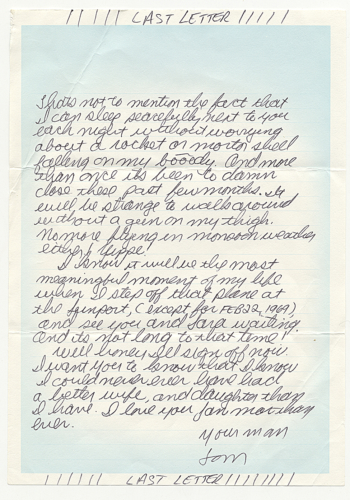 ||||| LAST LETTER |||||
Thats not to mention the fact that
I can sleep peacefully next to you
each night without worrying
about a rocket or mortar shell
falling on my boody. And more
than once its been to damn
close these past few months. It
will be strange to walk around
without a gun on my thigh.
No more flying in monsoon weather
either! Yippe!
I know it will be the most
meaningful moment of my life
when I step off that plane at
the airport, (except for FEB 22, 1969)
and see you and Lara waiting.
And its not long to that time!
Well honey I'll sign off now.
I want you to know that I know
I could never ever have had
a better wife, and daughter than
I have. I love you Jan more than
ever.
Your man
Tom
||||| LAST LETTER |||||||